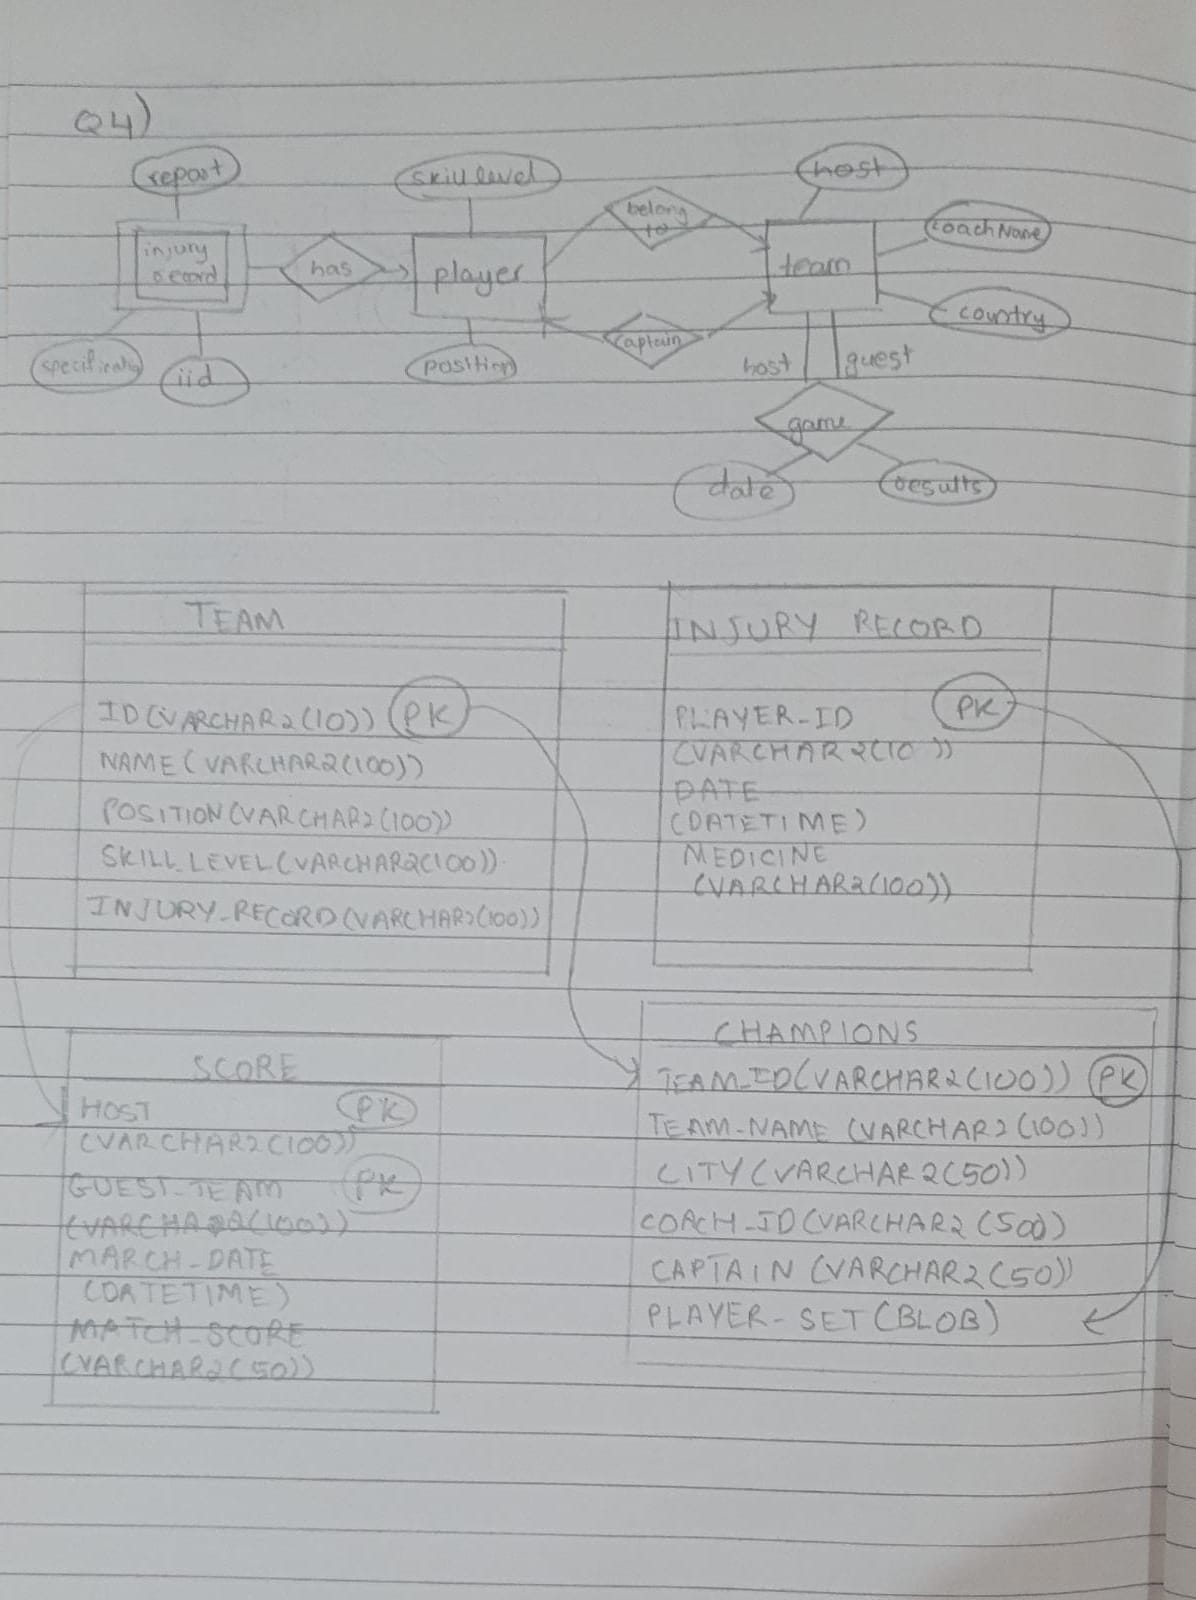 Q4)
report
skill level
host
belong
to
coachName
injury
record
has
player
team
country
captain
iid
position
host
guest
game
date
results
TEAM
ID(VARCHAR2(10)) PK
NAME(VARCHAR2(100))
POSITION(VARCHAR2(100))
SKILL_LEVEL(VARCHAR2(100))
INJURY_RECORD(VARCHAR2(100))
INJURY RECORD
PLAYER-ID PK
(VARCHAR2(10))
DATE
(DATETIME)
MEDICINE
(VARCHAR2(100))
SCORE
HOST PK
(VARCHAR2(100))
GUEST-TEAM PK
(VARCHAR2(100))
MARCH-DATE
(DATETIME)
MATCH-SCORE
(VARCHAR2(50))
CHAMPIONS
TEAM-ID(VARCHAR2(100)) PK
TEAM-NAME (VARCHAR2(100))
CITY(VARCHAR2(50))
COACH-ID(VARCHAR2(500)
CAPTAIN (VARCHAR2(50))
PLAYER-SET(BLOB)